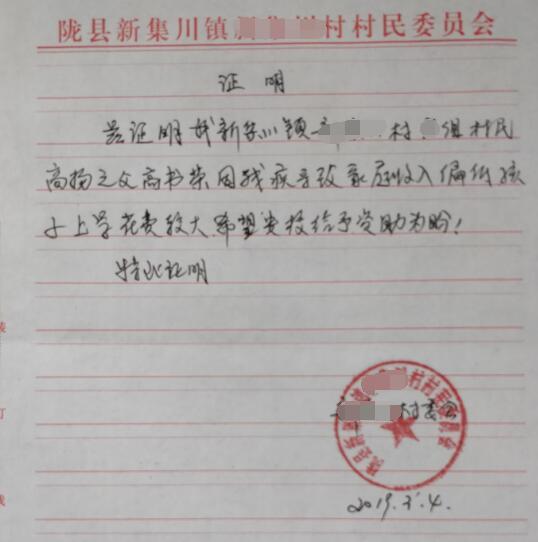 陇县新集川镇村村民委员会
证明
兹证明我新集川镇村组村民
高扬之父高书荣因残疾导致家庭收入偏低孩
子上学花费较大,希望贵校给予资助为盼!
特此证明
村委会
陇县新集川镇村村民委员会
2019.3.4.
装
订
线